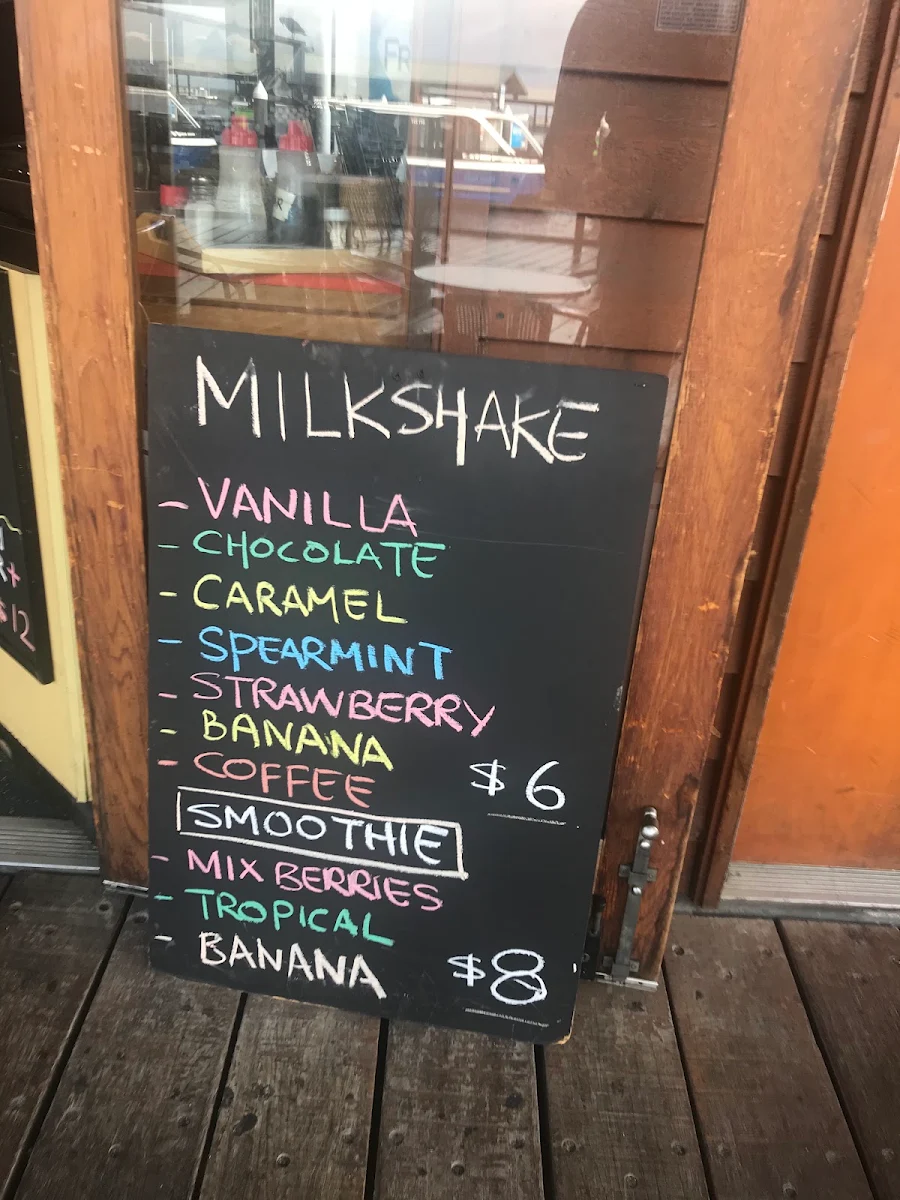 FR
MILKSHAKE
- VANILLA
- CHOCOLATE
- CARAMEL
- SPEARMINT
- STRAWBERRY
- BANANA
- COFFEE $6
SMOOTHIE
- MIX BERRIES
- TROPICAL
- BANANA $8
$12